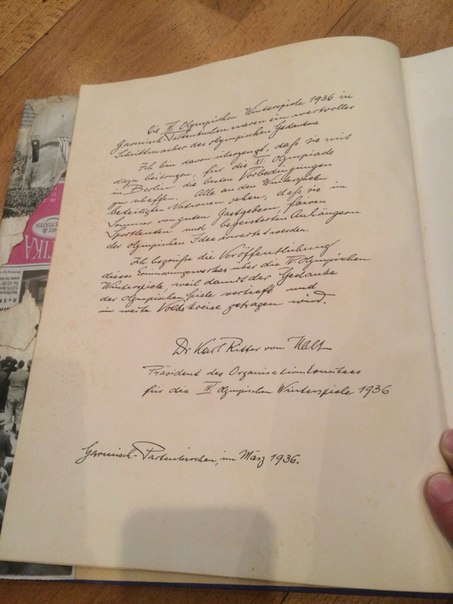 Die IV. Olympischen Winterspiele 1936 in
Garmisch-Partenkirchen waren ein wertvoller
Schrittmacher des olympischen Gedankens.
Ich bin davon überzeugt, daß sie mit
dazu beitrugen, für die XI. Olympiade
in Berlin die besten Vorbedingungen
zu schaffen. Alle an den Winterspielen
beteiligten Nationen sahen, daß sie im
Sommer von guten Gastgebern, fairen
Sportleuten und begeisterten Anhängern
der olympischen Idee erwartet werden.
Ich begrüße die Veröffentlichung
dieses Erinnerungswerkes über die IV. Olympischen
Winterspiele, weil damit der Gedanke
der Olympischen Spiele vertieft und
in weite Volkskreise getragen wird.
Dr Karl Ritter von Halt
Präsident des Organisationskomitees
für die IV. olympischen Winterspiele 1936
Garmisch-Partenkirchen, im März 1936.